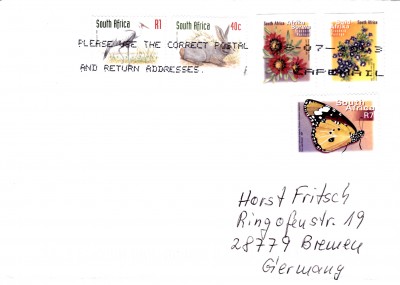 South Africa R1
South Africa 40c
South Africa
PLEASE USE THE CORRECT POSTAL
AND RETURN ADDRESSES.
South Africa
R7
Horst Fritsch
Ringofenstr. 19
28779 Bremen
Germany